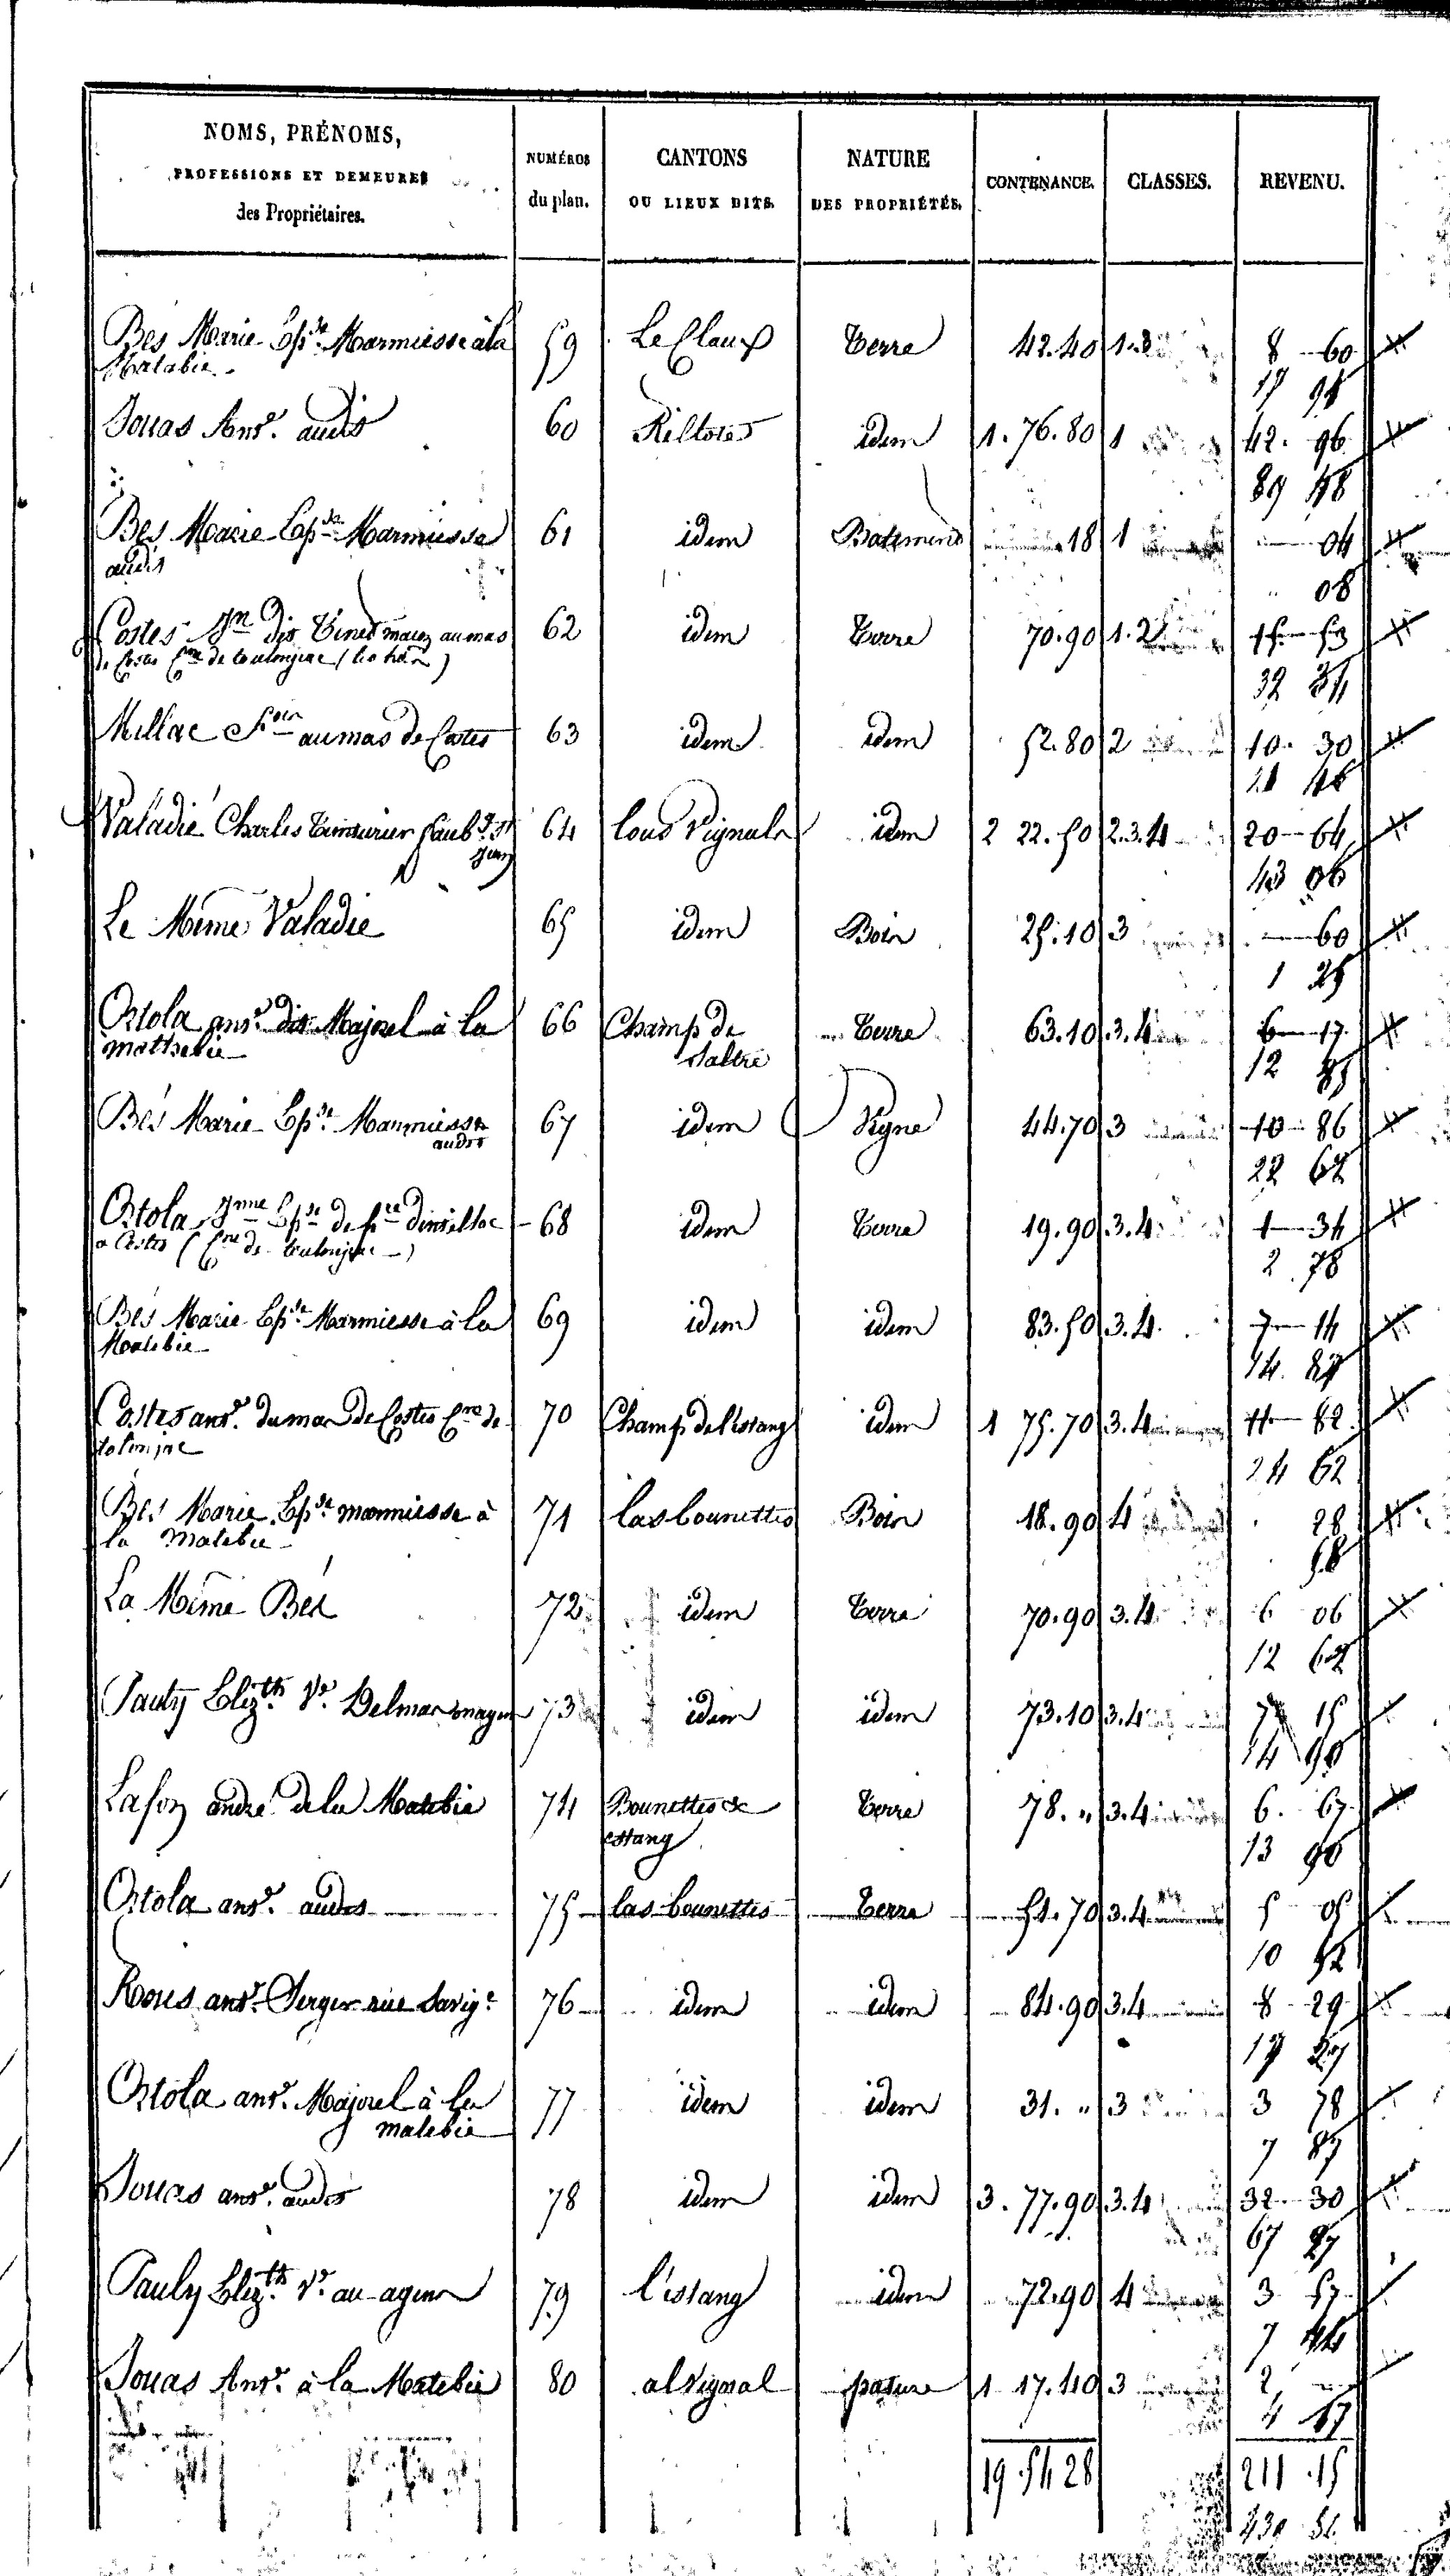 NOMS, PRÉNOMS, PROFESSIONS ET DEMEURES des Propriétaires. NUMÉROS du plan. CANTONS OU LIEUX DITS. NATURE DES PROPRIÉTÉS. CONTENANCE. CLASSES. REVENU.
Bés Marie Epse Marmiesse à la 59 Le Claux Terre 42.40 1.3 8 60
Malabie
17 94
Jouas Ant. audit 60 idem 1.76.80 1 42. 96
89 48
Bés Marie Epse Marmiesse 61 idem Batiment 18 1 04
audit
08
Costes Jn dit au mas 62 idem Terre 70.90 1.2 15 53
de Costes Cne de toulonjac
32 34
Millac au mas de Costes 63 idem idem 52.80 2 10. 30
21 46
Valadié Charles faubg St 64 lous Vignals idem 2 22.50 2.3.4 20 64
Jean
43 06
Le Même Valadié 65 idem Bois 25.10 3 60
1 25
Ortola ant. dit Majorel à la 66 Champ de Terre 63.10 3.4 6 17
12 85
Bés Marie Epse Marmiesse 67 idem Vigne 44.70 3 10 86
audit
22 62
Ortola Jnne Epse de 68 idem Terre 19.90 3.4 1 34
a Costes (Cne de toulonjac)
2 78
Bés Marie Epse Marmiesse à la 69 idem idem 83.50 3.4. 7 14
Malebie
14. 87
Costes ant. du mas de Costes Cne de 70 Champ del'estang idem 1 75.70 3.4 11 82
tolonjac
24 62
Bés Marie Epse marmiesse à 71 las bounettes Bois 18.90 4 28
la Malebie
58
La Même Bés 72 idem Terre 70.90 3.4 6 06
12 62
Pauty Elizth Ve Delmas 73 idem idem 73.10 3.4 7 15
14 90
Lafon andré de la Malebie 74 Bounettes & Terre 78. " 3.4 6. 67
estang
13 90
Ortola ant. audit 75 las bounettes Terre 51.70 3.4 5 05
10 52
Rous ant. rue Savige 76 idem idem 84.90 3.4 8 29
17 27
Ortola ant. Majorel à la 77 idem idem 31. " 3 3 78
malebie
7 87
Jouas ant. audit 78 idem idem 3.77.90 3.4 32 30
67 27
Pauty Elizth Ve au 79 l'estang idem 72.90 4 3 57
7 44
Jouas Ant. à la Malebie 80 al Vignal pature 1 17.40 3 2
4 17
19.54 28 211.15